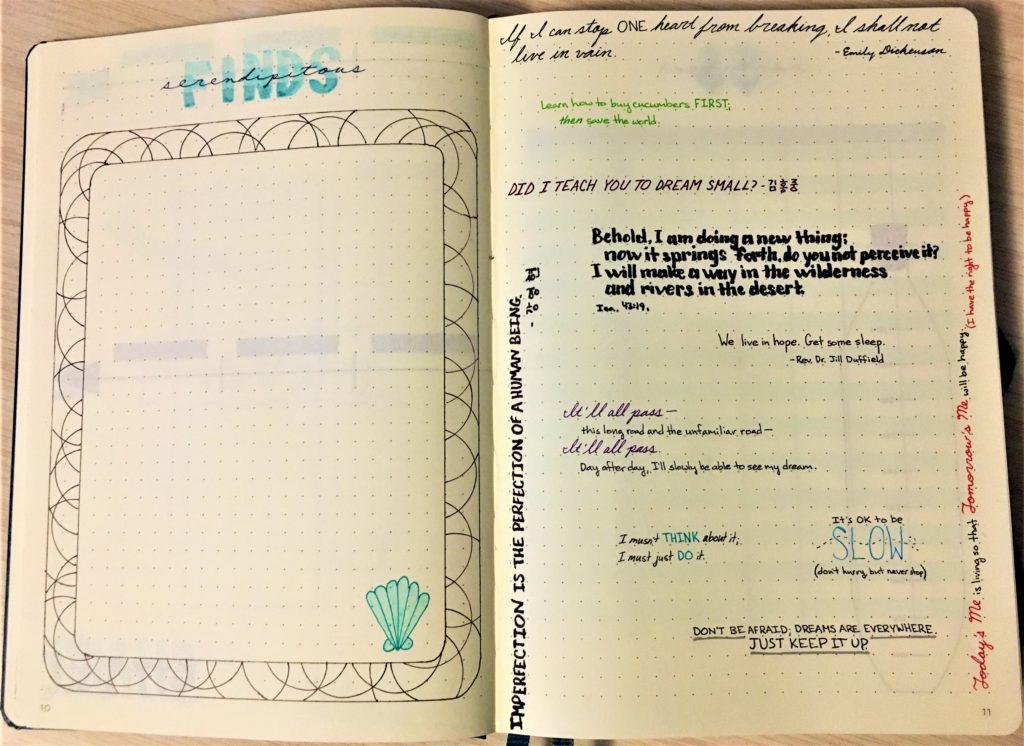 serendipitous
FINDS
10
If I can stop ONE heart from breaking, I shall not
live in vain.
- Emily Dickenson
Learn how to buy cucumbers FIRST;
then save the world.
DID I TEACH YOU TO DREAM SMALL? - 김홍중
Behold, I am doing a new thing;
now it springs forth, do you not perceive it?
I will make a way in the wilderness
and rivers in the desert.
Isa. 43:19.
We live in hope. Get some sleep.
- Rev. Dr. Jill Duffield
It'll all pass —
this long road and the unfamiliar road —
It'll all pass.
Day after day, I'll slowly be able to see my dream.
I musn't THINK about it;
I must just DO it.
It's OK to be
SLOW
(don't hurry, but never stop)
DON'T BE AFRAID; DREAMS ARE EVERYWHERE.
JUST KEEP IT UP.
IMPERFECTION IS THE PERFECTION OF A HUMAN BEING. - 강영현
Today's Me is living so that Tomorrow's Me will be happy. (I have the right to be happy)
11